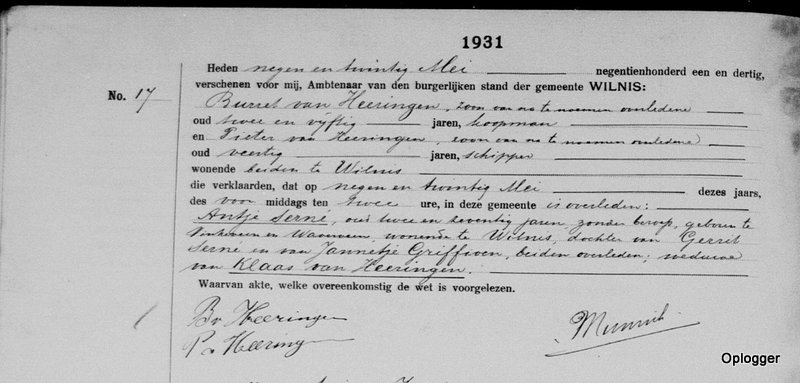 1931
Heden negen en twintig Mei negentienhonderd een en dertig,
verschenen voor mij, Ambtenaar van den burgerlijken stand der gemeente WILNIS:
No. 17
Burret van Heeringen, zoon van na te noemen overledene
oud twee en vijftig jaren, koopman
en Pieter van Heeringen, zoon van na te noemen overledene
oud veertig jaren, schipper
wonende beiden te Wilnis
die verklaarden, dat op negen en twintig Mei dezes jaars,
des voor middags ten twee ure, in deze gemeente is overleden:
Antje Serné, oud twee en zeventig jaren, zonder beroep, geboren te
Vinkeveen en Waverveen, wonende te Wilnis, dochter van Gerret
Serné en van Jannetje Griffioen, beiden overleden; weduwe
van Klaas van Heeringen.
Waarvan akte, welke overeenkomstig de wet is voorgelezen.
Bv Heeringen
P v Heeringen
Oplogger